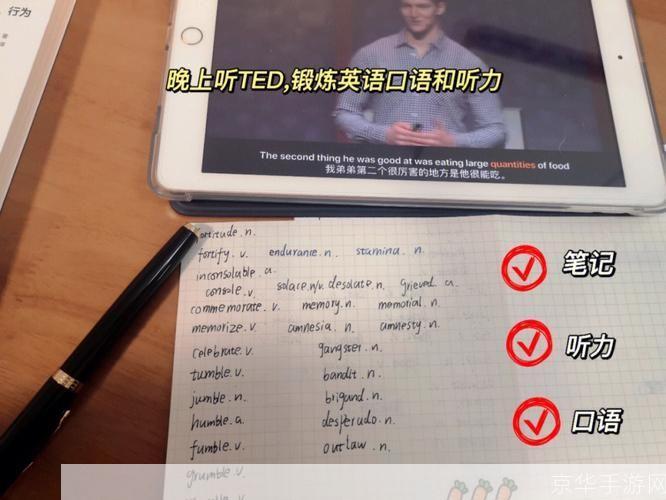 行为
晚上听TED,锻炼英语口语和听力
The second thing he was good at was eating large quantities of food
我弟弟第二个很厉害的地方是他很能吃。
fortitude.n.
fortify.v. endurance.n. stamina.n.
inconsolable.a.
console.v. solace.n/v. desolate.n. grieved.a.
commemorate.v. memory.n. memorial.n.
memorize.v. amnesia.n. amnesty.n.
celebrate.v. gangster.n.
tumble.v. bandit.n.
jumble.n. brigand.n.
humble.a. desperado.n.
fumble.v. outlaw.n.
grumble.v.
笔记
听力
口语
京华手游网